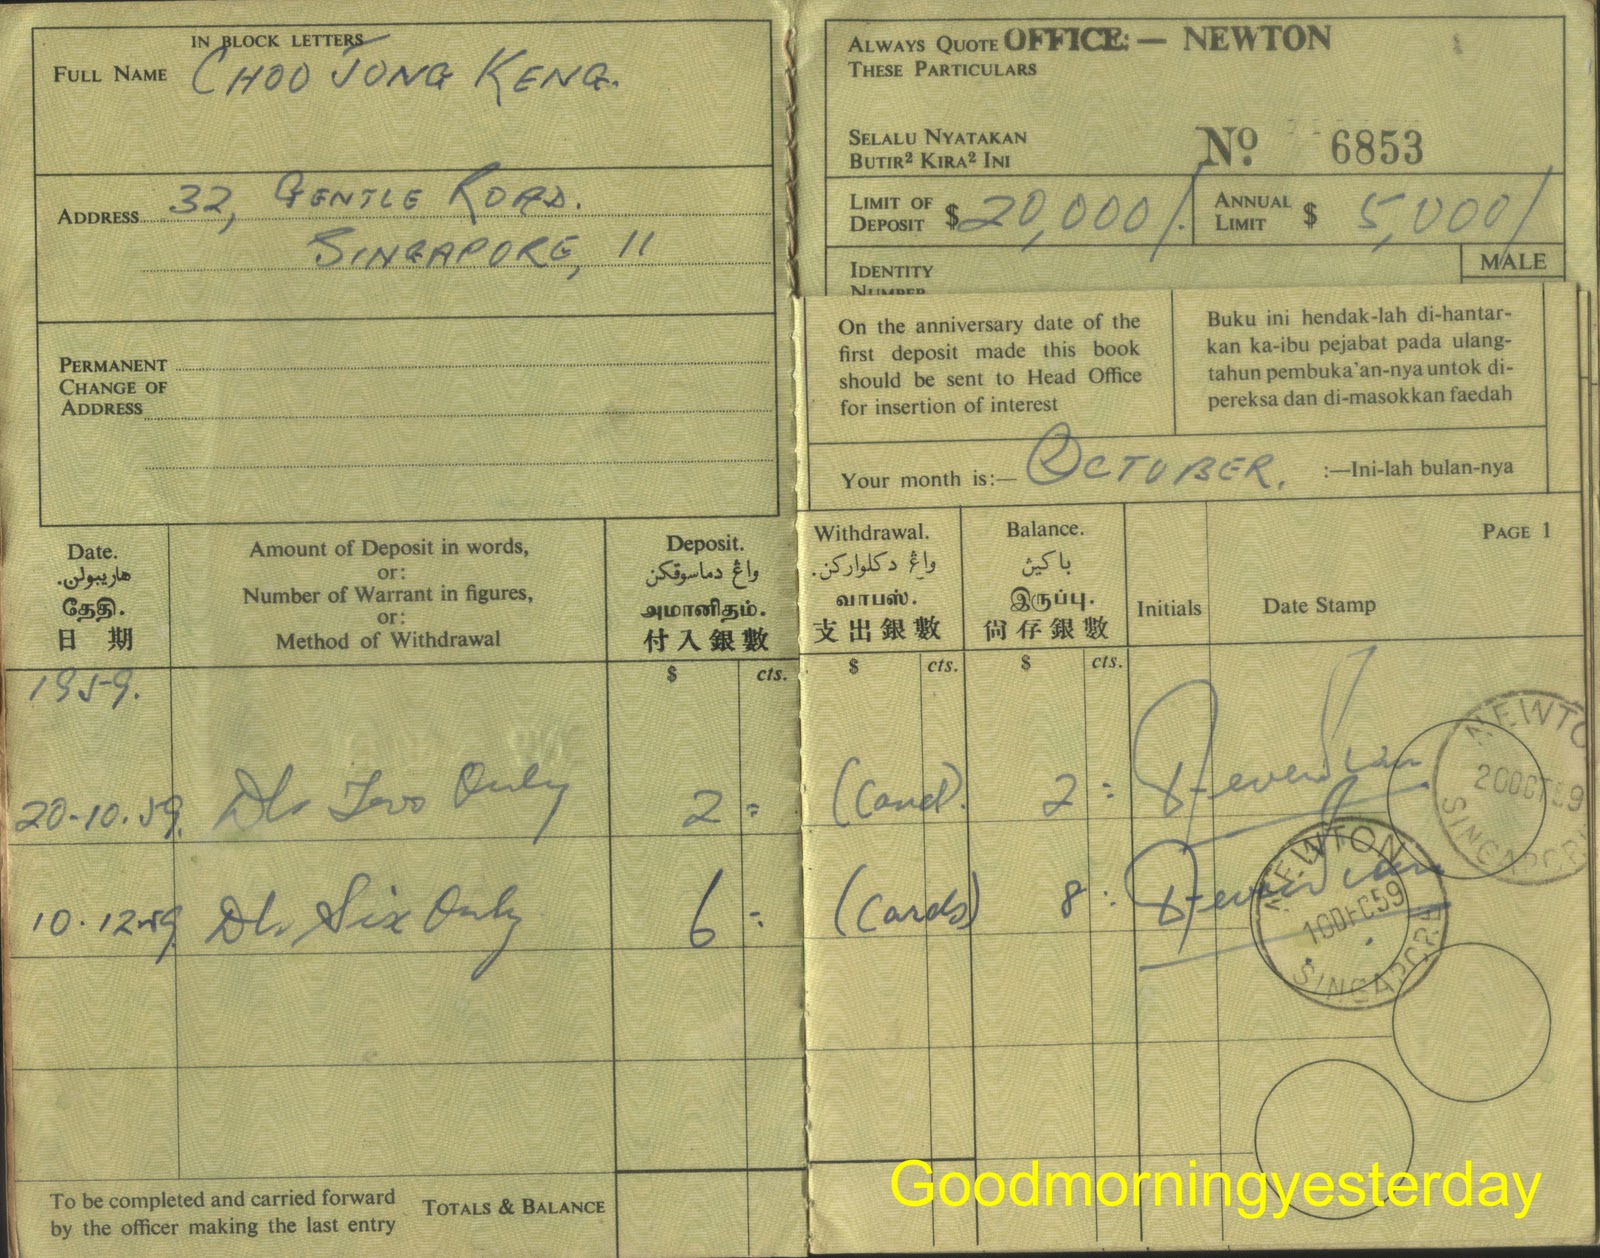 IN BLOCK LETTERS
FULL NAME CHOO JONG KENG.
ADDRESS 32, GENTLE ROAD.
SINGAPORE, 11
PERMANENT
CHANGE OF
ADDRESS
ALWAYS QUOTE OFFICE:— NEWTON
THESE PARTICULARS
SELALU NYATAKAN
BUTIR² KIRA² INI
Nº 6853
LIMIT OF
DEPOSIT $ 20,000/.
ANNUAL
LIMIT $ 5,000/
IDENTITY
NUMBER
MALE
On the anniversary date of the
first deposit made this book
should be sent to Head Office
for insertion of interest
Buku ini hendak-lah di-hantar-
kan ka-ibu pejabat pada ulang-
tahun pembuka'an-nya untok di-
pereksa dan di-masokkan faedah
Your month is:— OCTOBER. :—Ini-lah bulan-nya
PAGE 1
Date.
هاريبولن.
தேதி.
日 期
Amount of Deposit in words,
or:
Number of Warrant in figures,
or:
Method of Withdrawal
Deposit.
واڠ دماسوقكن
அமானிதம்.
付入銀數
Withdrawal.
واڠ دكلواركن.
வாபஸ்.
支出銀數
Balance.
باكين
இருப்பு.
尙存銀數
Initials
Date Stamp
$ cts. $ cts. $ cts.
1959.
20-10.59. Dls Two Only 2 = (Card). 2 =
NEWTO
20 OCT 59
SINGAPORE
10.12.59 Dls Six Only 6 = (Cards) 8 :
NEWTON
10 DEC 59
SINGAPORE
To be completed and carried forward
by the officer making the last entry
TOTALS & BALANCE
Goodmorningyesterday